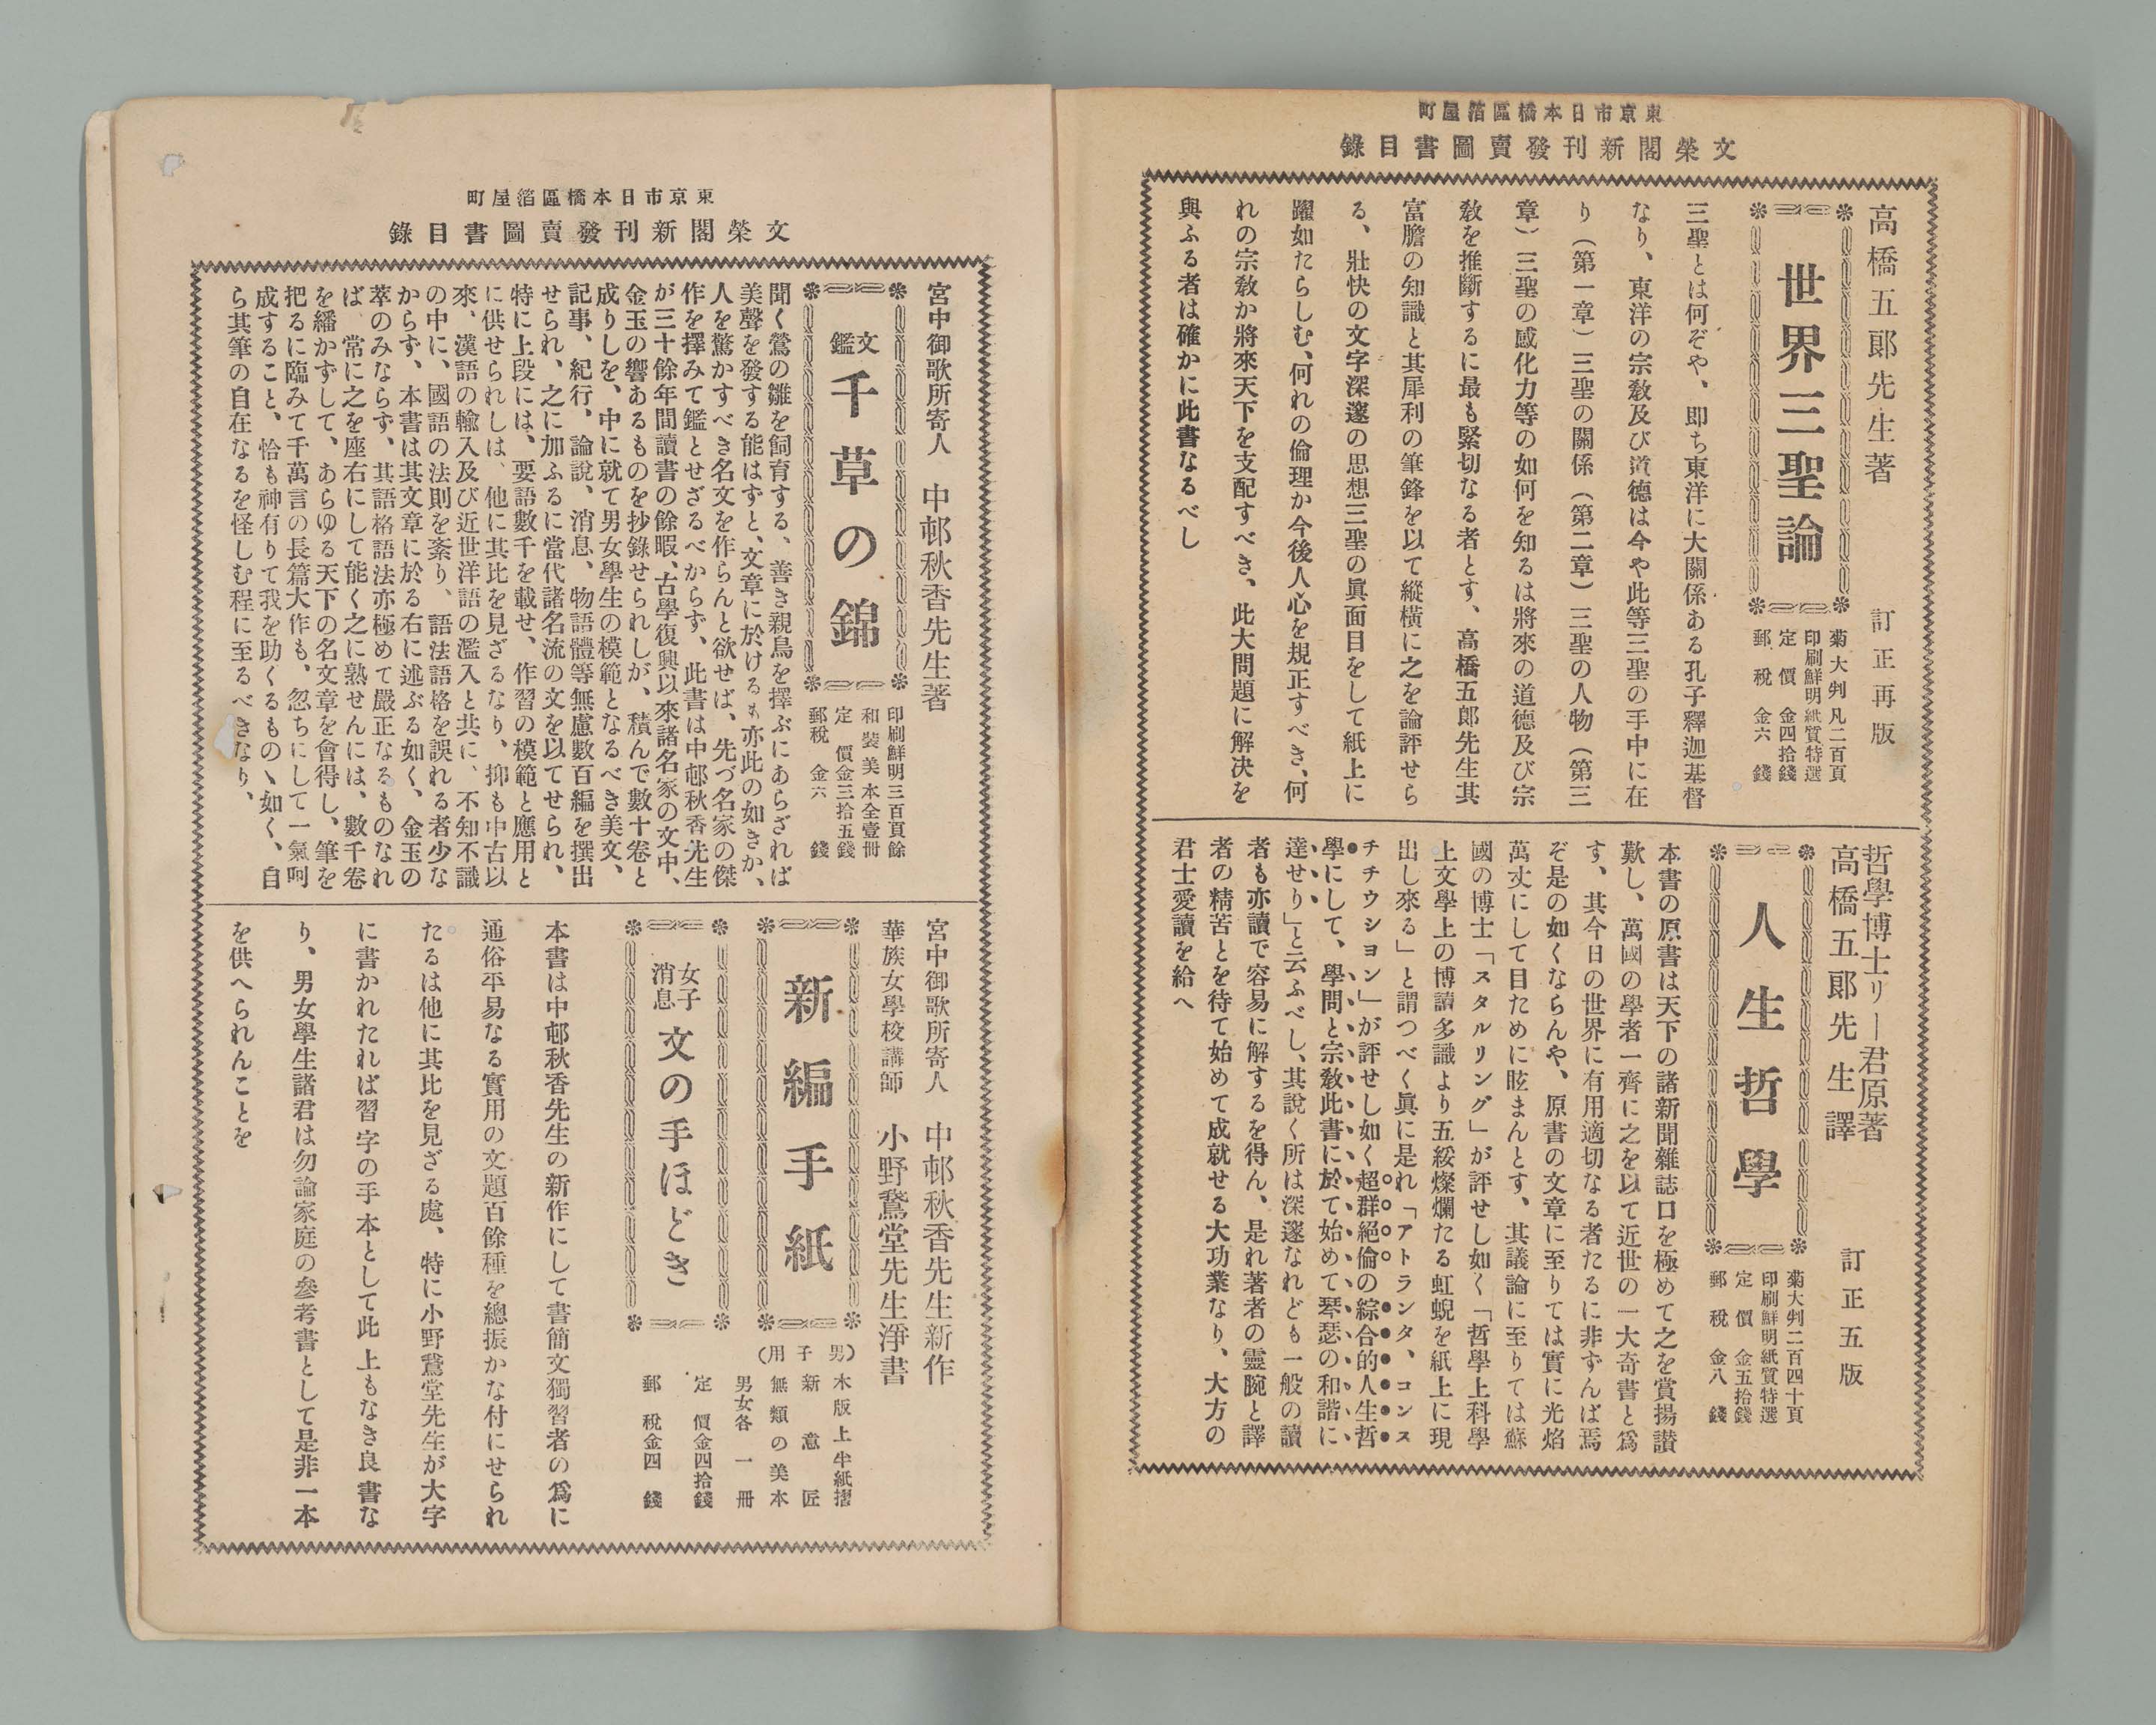 東京市日本橋區箔屋町
文榮閣新刊發賣圖書目錄
高橋五郎先生著
世界三聖論
訂正再版
菊大判凡二百頁
印刷鮮明紙質特選
定價金四拾錢
郵稅金六錢
三聖とは何ぞや、即ち東洋に大關係ある孔子釋迦基督
なり、東洋の宗敎及び道德は今や此等三聖の手中に在
り（第一章）三聖の關係（第二章）三聖の人物（第三
章）三聖の感化力等の如何を知るは將來の道德及び宗
敎を推斷するに最も緊切なる者とす、高橋五郎先生其
富膽の知識と其犀利の筆鋒を以て縱橫に之を論評せら
る、壯快の文字深邃の思想三聖の眞面目をして紙上に
躍如たらしむ、何れの倫理か今後人心を規正すべき、何
れの宗敎か將來天下を支配すべき、此大問題に解決を
與ふる者は確かに此書なるべし
哲學博士リー君原著
高橋五郎先生譯
人生哲學
訂正五版
菊大判二百四十頁
印刷鮮明紙質特選
定價金五拾錢
郵稅金八錢
本書の原書は天下の諸新聞雜誌口を極めて之を賞揚讃
歎し、萬國の學者一齊に之を以て近世の一大奇書と爲
す、其今日の世界に有用適切なる者たるに非ずんば焉
ぞ是の如くならんや、原書の文章に至りては實に光焰
萬丈にして目ために眩まんとす、其議論に至りては蘇
國の博士「スタルリング」が評せし如く「哲學上科學
上文學上の博讀多識より五綵燦爛たる虹蜺を紙上に現
出し來る」と謂つべく眞に是れ「アトランタ、コンス
チチウシヨン」が評せし如く超群絕倫の綜合的人生哲
學にして、學問と宗敎此書に於て始めて琴瑟の和諧に
達せり」と云ふべし、其說く所は深邃なれども一般の讀
者も亦讀で容易に解するを得ん、是れ著者の靈腕と譯
者の精苦とを待て始めて成就せる大功業なり、大方の
君士愛讀を給へ
東京市日本橋區箔屋町
文榮閣新刊發賣圖書目錄
宮中御歌所寄人　中邨秋香先生著
文鑑 千草の錦
印刷鮮明三百頁餘
和裝美本全壹冊
定價金三拾五錢
郵稅金六錢
聞く鶯の雛を飼育する、善き親鳥を擇ぶにあらざれば
美聲を發する能はずと、文章に於けるも亦此の如きか、
人を驚かすべき名文を作らんと欲せば、先づ名家の傑
作を擇みて鑑とせざるべからず、此書は中邨秋香先生
が三十餘年間讀書の餘暇、古學復興以來諸名家の文中、
金玉の響あるものを抄錄せられしが、積んで數十卷と
成りしを、中に就て男女學生の模範となるべき美文、
記事、紀行、論說、消息、物語體等無慮數百編を撰出
せられ、之に加ふるに當代諸名流の文を以てせられ、
特に上段には、要語數千を載せ、作習の模範と應用と
に供せられしは、他に其比を見ざるなり、抑も中古以
來、漢語の輸入及び近世洋語の濫入と共に、不知不識
の中に、國語の法則を紊り、語法語格を誤れる者少な
からず、本書は其文章に於る右に述ぶる如く、金玉の
萃のみならず、其語格語法亦極めて嚴正なるものなれ
ば、常に之を座右にして能く之に熟せんには、數千卷
を繙かずして、あらゆる天下の名文章を會得し、筆を
把るに臨みて千萬言の長篇大作も、忽ちにして一氣呵
成すること、恰も神有りて我を助くるものゝ如く、自
ら其筆の自在なるを怪しむ程に至るべきなり、
宮中御歌所寄人　中邨秋香先生新作
華族女學校講師　小野鵞堂先生淨書
新編手紙
（男子用）
女子消息 文の手ほどき
木版上半紙摺
新意匠
無類の美本
男女各一冊
定價金四拾錢
郵稅金四錢
本書は中邨秋香先生の新作にして書簡文獨習者の爲に
通俗平易なる實用の文題百餘種を總振かな付にせられ
たるは他に其比を見ざる處、特に小野鵞堂先生が大字
に書かれたれば習字の手本として此上もなき良書な
り、男女學生諸君は勿論家庭の參考書として是非一本
を供へられんことを